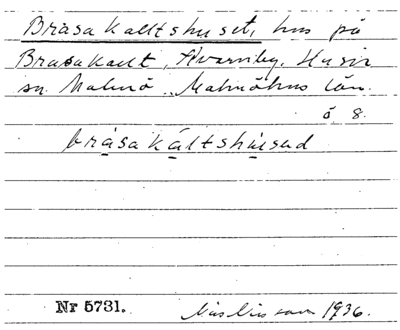 Brasakalltshuset, hus på
Brasakallt, Kvarnby, Husie
sn. Malmö. Malmöhus län.
ö 8.
bråsakáltshúsed
Nr 5731.
1936.